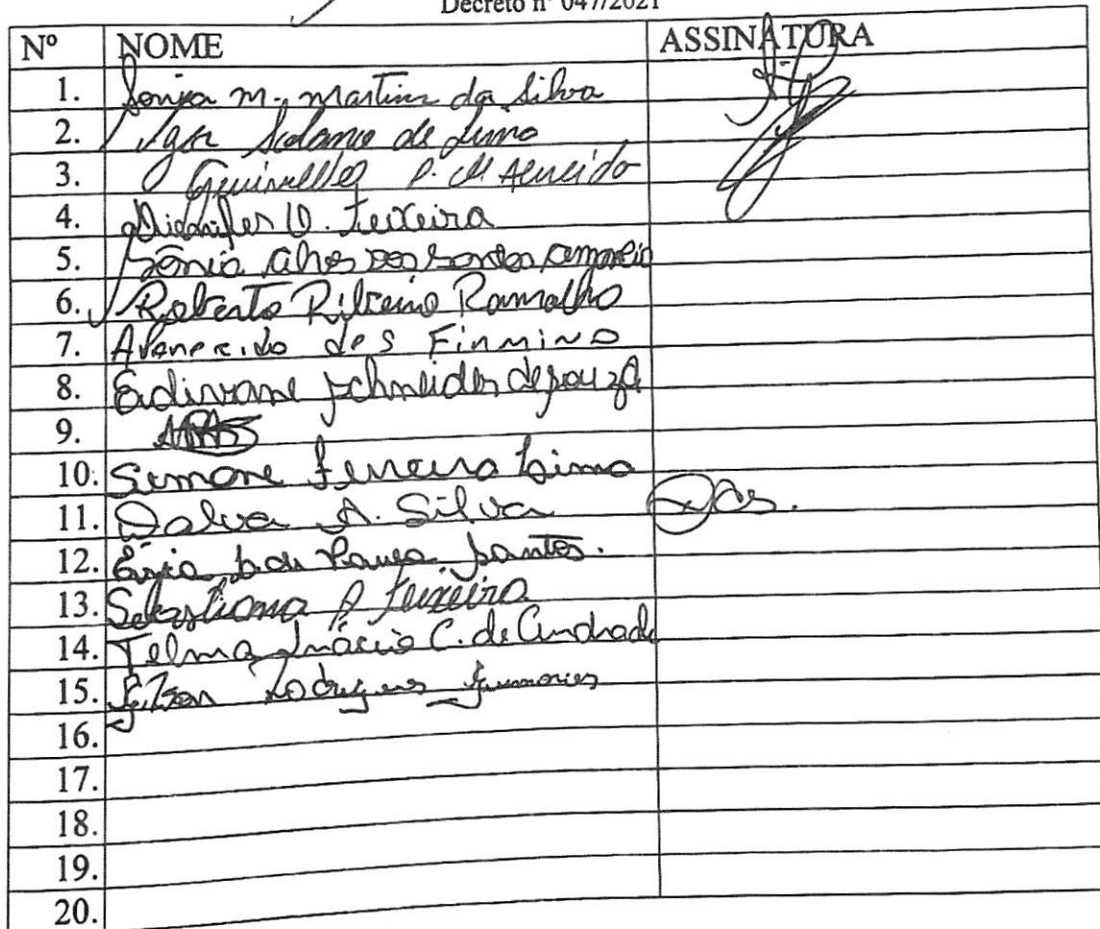 Decreto nº 047/2021
Nº NOME ASSINATURA
1. Sonia M. Martins da Silva
2. de Lima
3. P. de Almeida
4. V. Teixeira
5. Sônia Alves dos Santos
6. Roberto Ribeiro Ramalho
7. Aparecido dos Firmino
8. Edivane Schneider de Souza
9.
10. Simone Ferreira Lima
11. Dalva A. Silva
12. Santos.
13. Sebastiana P Teixeira
14. Telma Inácio C. de Andrade
15. Rodrigues
16.
17.
18.
19.
20.